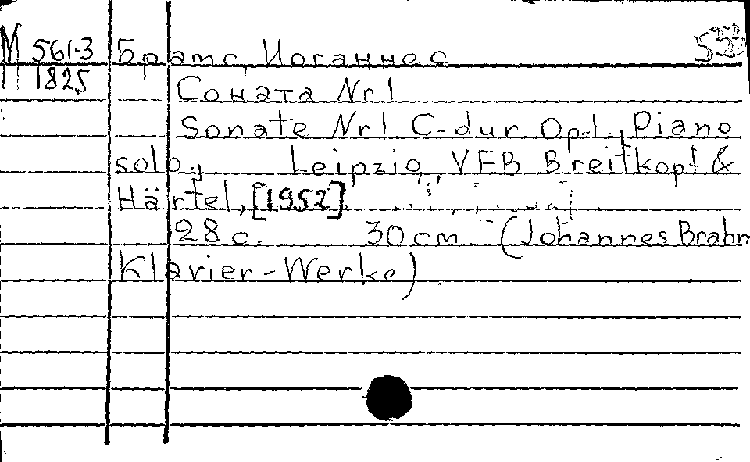 М 561-3 Брамс, Иоганнес
1825 Соната Nr 1
Sonate Nr 1 C-dur Op.1, Piano
solo., Leipzig, VEB Breitkopf &
Härtel, [1952]
28 с. 30 cm. - (Johannes Brahm
Klavier-Werke)